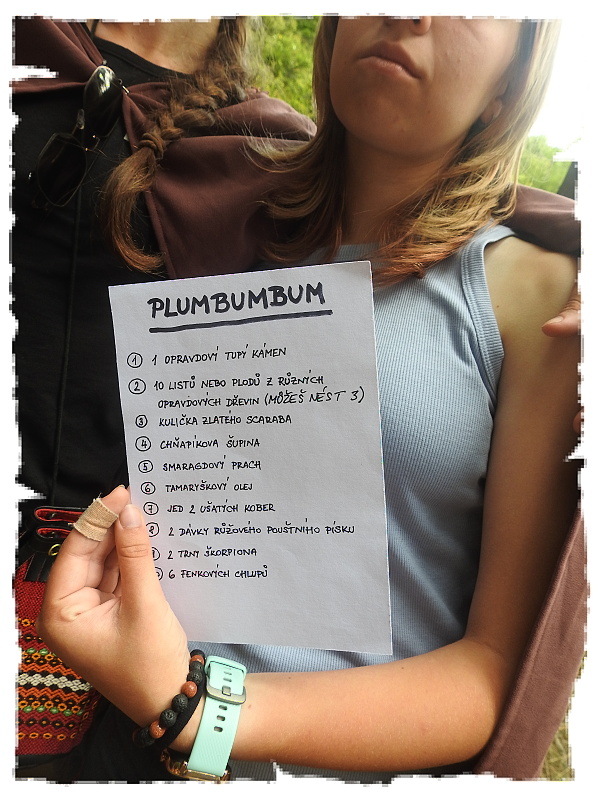 PLUMBUMBUM
1 1 OPRAVDOVÝ TUPÝ KÁMEN
2 10 LISTŮ NEBO PLODŮ Z RŮZNÝCH
OPRAVDOVÝCH DŘEVIN (MŮŽEŠ NÉST 3)
3 KULIČKA ZLATÉHO SCARABA
4 CHŇAPÍKOVA ŠUPINA
5 SMARAGDOVÝ PRACH
6 TAMARYŠKOVÝ OLEJ
7 JED 2 UŠATÝCH KOBER
8 2 DÁVKY RŮŽOVÉHO POUŠTNÍHO PÍSKU
2 TRNY ŠKORPIONA
6 FENKOVÝCH CHLUPŮ